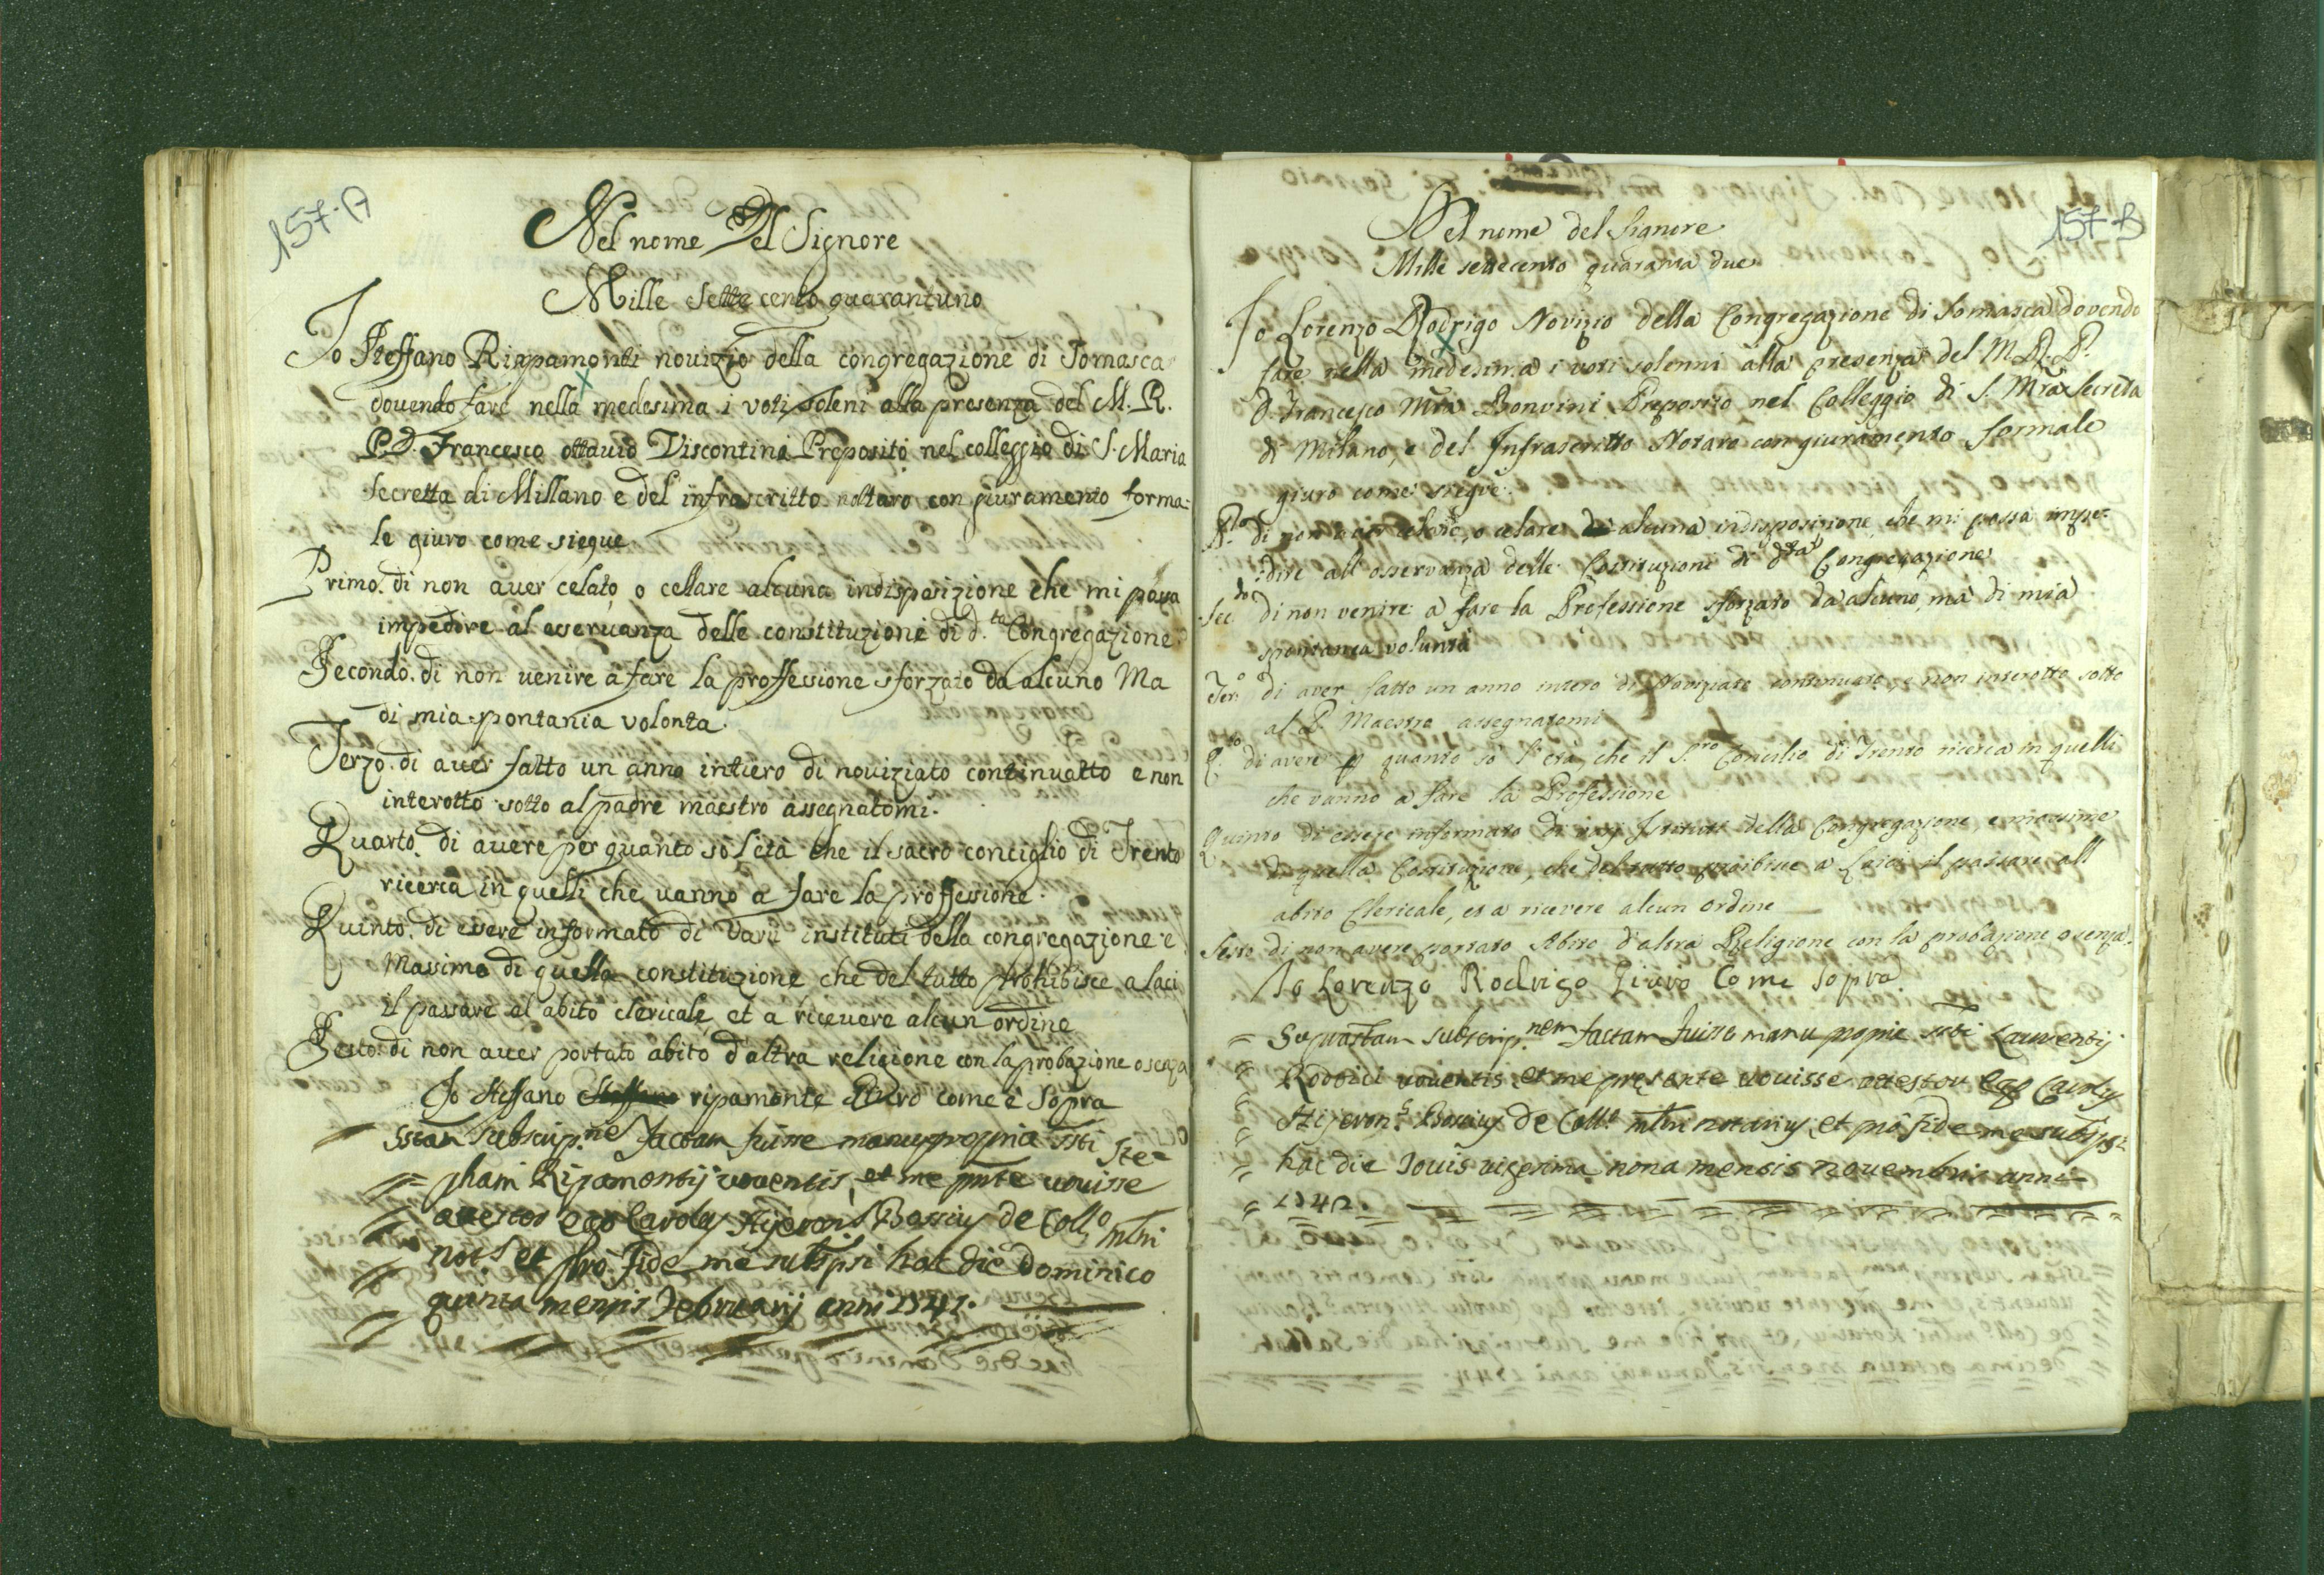 157-A
Nel nome Del Signore
Mille Sette cento quarantuno
Io Steffano Riapamonti nouizio della congregazione di Somasca
douendo fare nella medesima i voti soleni alla presenza del M. R.
P. D. Francesco ottauio Viscontini Preposito nel colleggio di S. Maria
secretta di Millano e del infrascritto nottaro con giuramento forma-
le giuro come siegue
Primo. di non auer celato, o cellare alcuna indisposizione che mi possa
impedire al osseruanza delle constituzione di d.ta Congregazione
Secondo. di non uenire a fare la proffessione sforzato da alcuno Ma
di mia spontania volonta.
Terzo. di auer fatto un anno intiero di nouiziato continuatto e non
interotto sotto al padre maestro assegnatomi.
Quarto. di auere per quanto so l'età che il sacro conciglio di Trento
ricerca in quelli che uanno a fare la proffessione.
Quinto. di essere informato di varii instituti della congregazione e
Massime di quella constituzione che del tutto prohibisce a laci
il passare al abito clericale, et a riceuere alcun ordine
Sesto. di non auer portato abito d'altra religione con la probazione o senza
Io Steffano Steffano ripamonte Giuro come è Sopra
sstam subscrip.ne factam fuisse manu propria ssti Ste-
phani Ripamontij uouentis, et me pnte uouisse
attestor ego Carolus Hijeron.s Bossius de Coll.o mlni
not.s et pro fide me subspsi hac die dominico
quinta mensis Februarij anni 1741.
157-B
Nel nome del Signore
Mille settecento quaranta due
Io Lorenzo Rodrigo Novizio della Congregazione di Somasca dovendo
fare nella medesima i voti solenni alla presenza del M. R. P.
D. Francesco Mra Bonvini Preposito nel Colleggio di S. Mra Secreta
di Milano, e del Infrascritto Notaro con giuramento formale
giuro come siegue
P.mo di non aver celato, o celare di alcuna indisposizione che mi possa impe-
dire all osservanza delle Costituzioni di d.ta Congregazione
Sec.do di non venire a fare la Professione sforzato da alcuno, ma di mia
spontanea volunta
Ter.o di aver fatto un anno intero di Noviziato continuato, e non interotto sotto
al P. Maestro assegnatomi
Q.to di avere p quanto so l'età, che il S.ro Concilio di Trento ricerca in quelli
che vanno a fare la Professione
Quinto di essere informato di varj Istituti della Congregazione, e massime
di quella Costituzione, che del tutto proibisce a Laici il passare all
abito Clericale, et a ricevere alcun ordine
Sesto di non avere portato Abito d'altra Religione con la probazione o senza.
Io Lorenzo Rodrigo Giuro Come Sopra
Suprastam subscrip.nem factam fuisse manu propria ssti Laurentij
Rodrici uouentis et me presente uouisse attestor ego Carolus
Hijeron.s Bossius de Coll.o mlni notarius, et pro fide me subspsi
hac die Jouis uigesima nona mensis nouembris anni
1742.